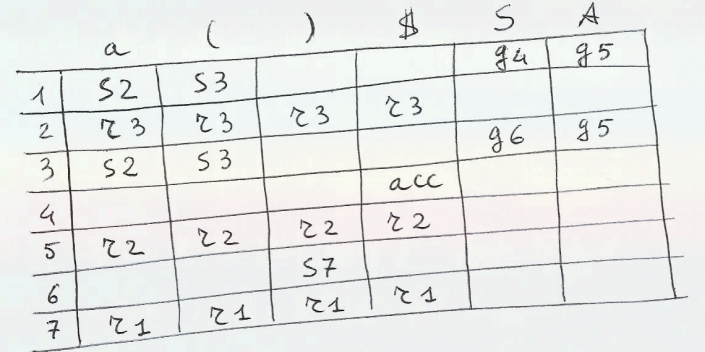 a ( ) $ S A
1 S2 S3 g4 g5
2 r3 r3 r3 r3
3 S2 S3 g6 g5
4 acc
5 r2 r2 r2 r2
6 S7
7 r1 r1 r1 r1